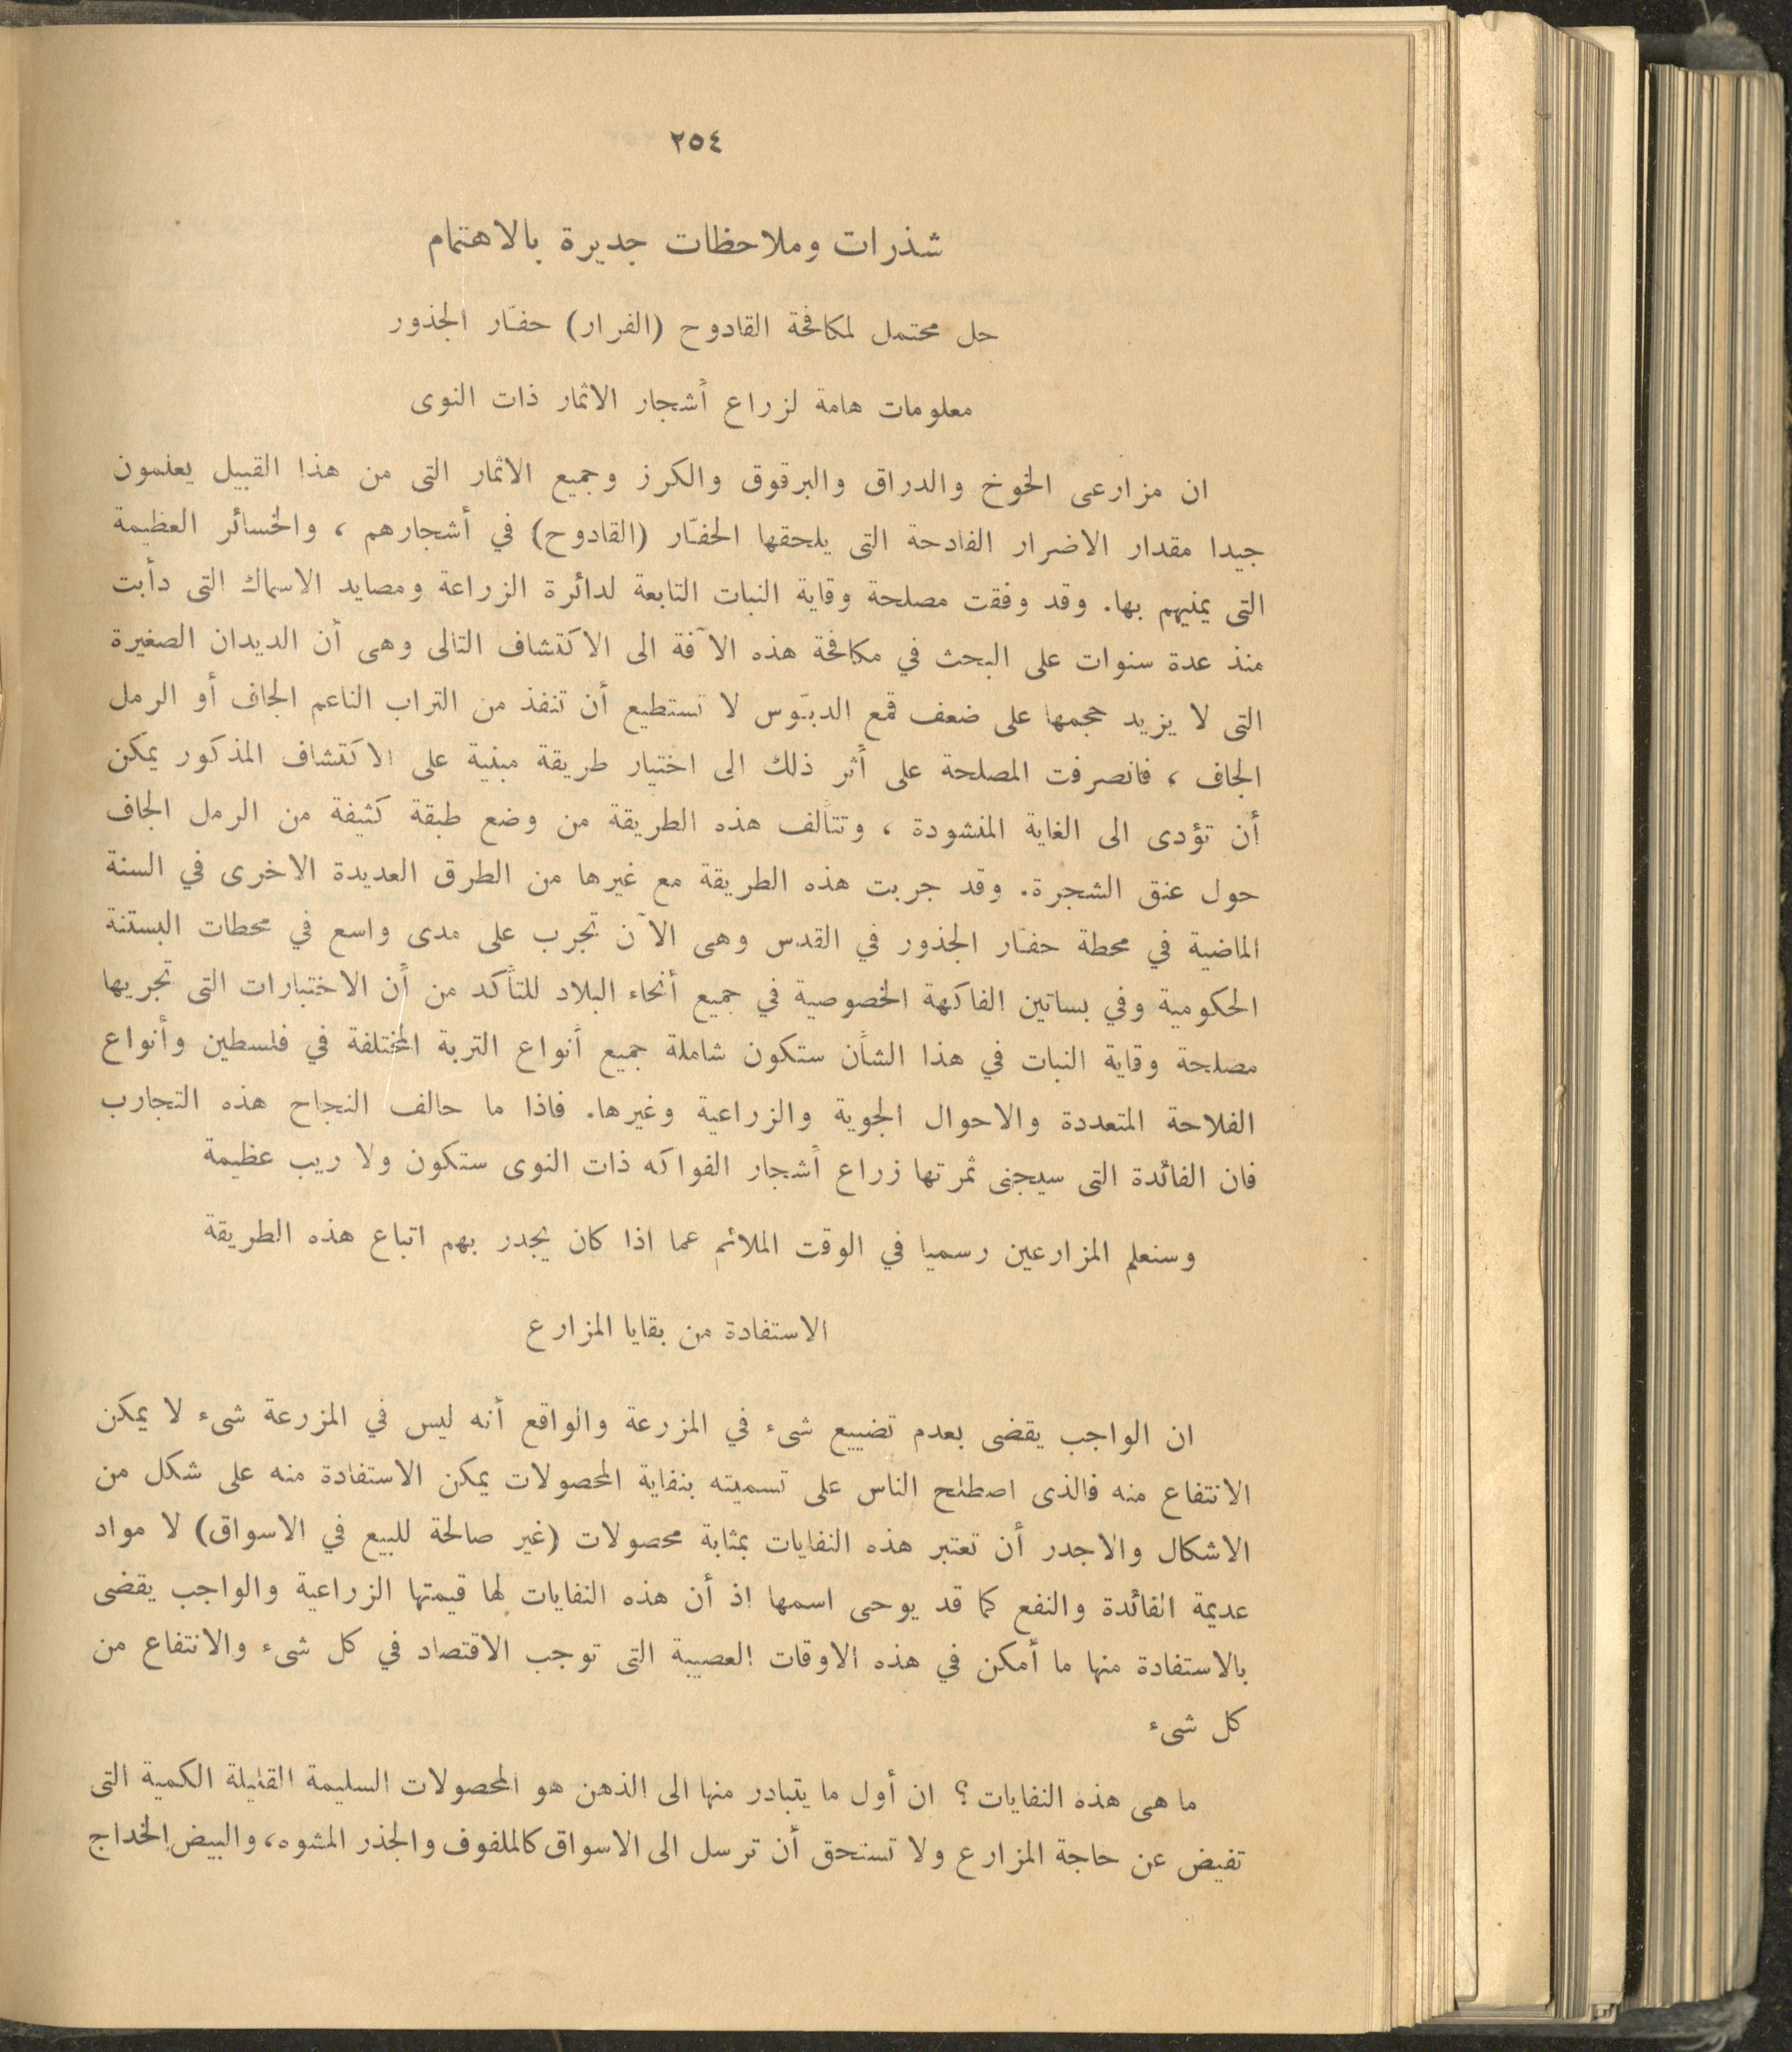 ٢٥٤
شذرات وملاحظات جديرة بالاهتمام
حل محتمل لمكافحة القادوح (الفرار) حفّار الجذور
معلومات هامة لزراع أشجار الاثمار ذات النوى
ان مزارعى الخوخ والدراق والبرقوق والكرز وجميع الاثمار التى من هذا القبيل يعلمون
جيدا مقدار الاضرار الفادحة التى يلحقها الحفّار (القادوح) في أشجارهم ، والخسائر العظيمة
التى يمنيهم بها. وقد وفقت مصلحة وقاية النبات التابعة لدائرة الزراعة ومصايد الاسماك التى دأبت
منذ عدة سنوات على البحث في مكافحة هذه الآفة الى الاكتشاف التالى وهى أن الديدان الصغيرة
التى لا يزيد حجمها على ضعف قمع الدبّوس لا تستطيع أن تنفذ من التراب الناعم الجاف أو الرمل
الجاف ، فانصرفت المصلحة على أثر ذلك الى اختيار طريقة مبنية على الاكتشاف المذكور يمكن
أن تؤدى الى الغاية المنشودة ، وتتألف هذه الطريقة من وضع طبقة كثيفة من الرمل الجاف
حول عنق الشجرة. وقد جربت هذه الطريقة مع غيرها من الطرق العديدة الاخرى في السنة
الماضية في محطة حفّار الجذور في القدس وهى الآن تجرب على مدى واسع في محطات البستنة
الحكومية وفي بساتين الفاكهة الخصوصية في جميع أنحاء البلاد للتأكد من أن الاختبارات التى تجريها
مصلحة وقاية النبات في هذا الشأن ستكون شاملة جميع أنواع التربة المختلفة في فلسطين وأنواع
الفلاحة المتعددة والاحوال الجوية والزراعية وغيرها. فاذا ما حالف النجاح هذه التجارب
فان الفائدة التى سيجنى ثمرتها زراع أشجار الفواكه ذات النوى ستكون ولا ريب عظيمة
وسنعلم المزارعين رسميا في الوقت الملائم عما اذا كان يجدر بهم اتباع هذه الطريقة
الاستفادة من بقايا المزارع
ان الواجب يقضى بعدم تضييع شىء في المزرعة والواقع أنه ليس في المزرعة شىء لا يمكن
الانتفاع منه فالذى اصطلح الناس على تسميته بنفاية المحصولات يمكن الاستفادة منه على شكل من
الاشكال والاجدر أن تعتبر هذه النفايات بمثابة محصولات (غير صالحة للبيع في الاسواق) لا مواد
عديمة الفائدة والنفع كما قد يوحى اسمها اذ أن هذه النفايات لها قيمتها الزراعية والواجب يقضى
بالاستفادة منها ما أمكن في هذه الاوقات العصيبة التى توجب الاقتصاد في كل شىء والانتفاع من
كل شىء
ما هى هذه النفايات؟ ان أول ما يتبادر منها الى الذهن هو المحصولات السليمة القليلة الكمية التى
تفيض عن حاجة المزارع ولا تستحق أن ترسل الى الاسواق كالملفوف والجذر المشوه، والبيض الخداج